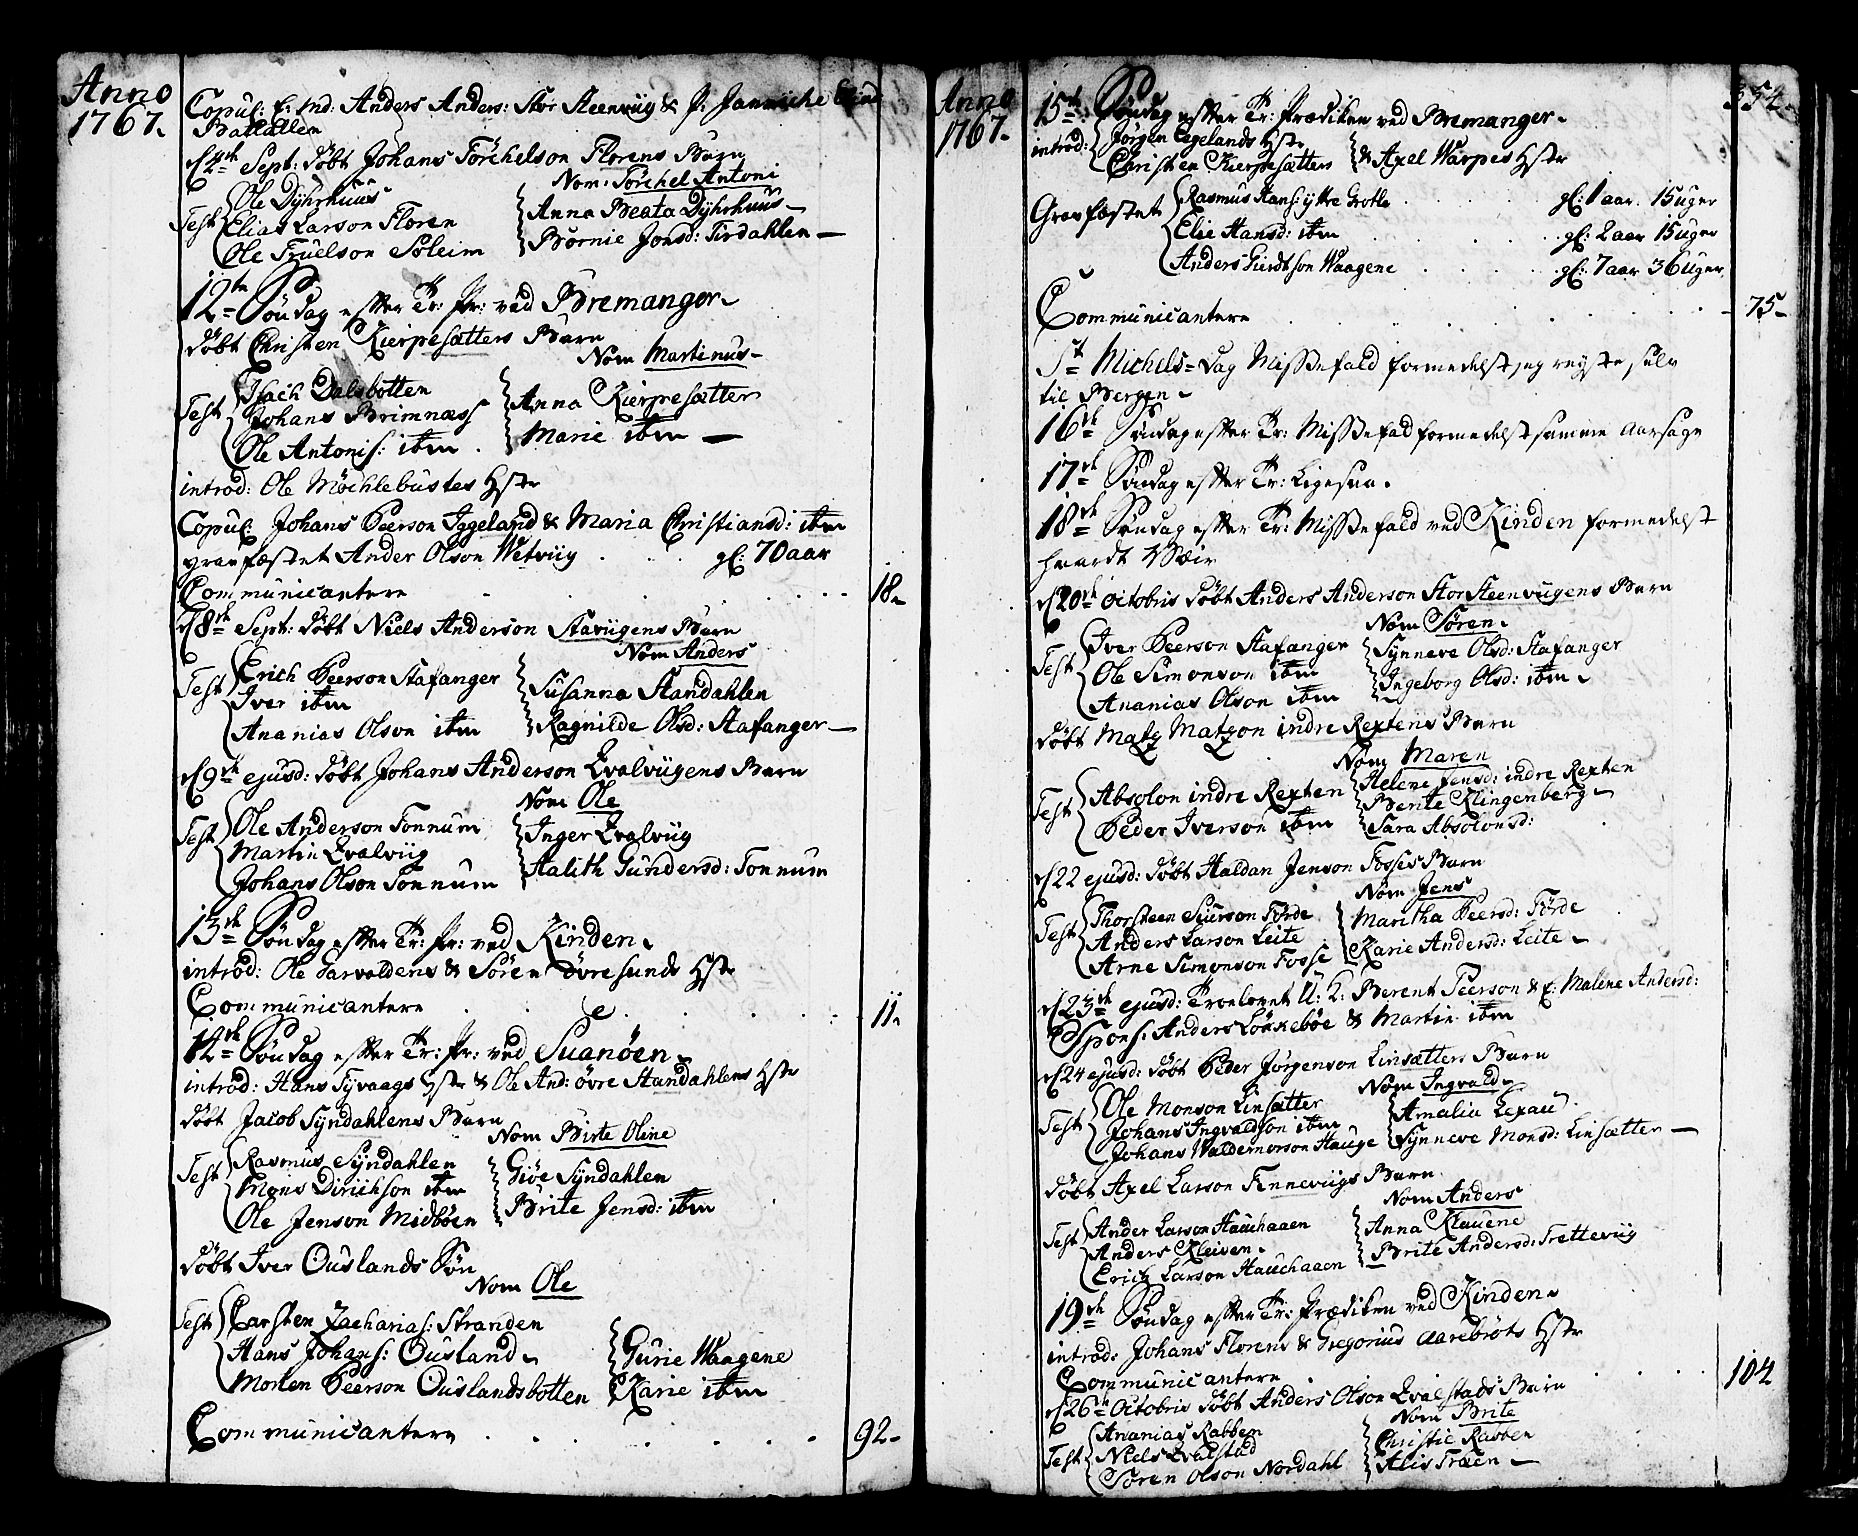 Anno
1767.
Copul: E: Md. Anders Anders: Stor Steenviig & P: Jannicke
Battallen
d 4de Sept: döbt Johans Törchelson Florens Barn
Nom: Törchel Antoni
Test Ole Dÿhrhuus
Elias Larson Floren
Ole Truelson Soleim
Anna Beata Dÿhrhuus
Bornie Jonsd: Tirdahlen
12te Söndag efter Tr: Pr: ved Bremanger
döbt Christen Kierpesætters Barn
Nom Martinus
Test Isach Dalsbotten
Johans Brimnæss
Ole Antonis: ibm
Anna Kierpesætter
Marie ibm
introd: Ole Möchlebustes Hstr
Copul: Johans Peerson Iggeland & Maria Christiansd: ibm
gravfæstet Ander Olson Wetviig gl: 70 aar
Communicantere 18
d 8de Sept: döbt Niels Anderson Staviigens Barn
Nom Anders
Test Erich Peerson Stafanger
Iver ibm
Ananias Olson ibm
Susanna Standahlen
Ragnilde Olsd: Stafanger
d 9de ejusd: döbt Johans Anderson Qvalviigens Barn
Nom Ole
Test Ole Anderson Tonnum
Martin Qvalviig
Johans Olson Tonnum
Inger Qvalviig
Aalith Gundersd: Tonnum
13de Söndag efter Tr: Pr: ved Kinden
introd: Ole Sarvoldens & Sören Övresunds Hstr
Communicantere 11
14de Söndag efter Tr: Pr: ved Suanöen
introd: Hans Tyvaags Hstr & Ole And: övre Standahlens Hstr
döbt Jacob Syndahlens Barn
Nom Birte Oline
Test Rasmus Syndahlen
Mons Dirichson ibm
Ole Jenson Midböen
Giöe Syndahlen
Brite Jensd: ibm
döbt Iver Ouslands Sön
Nom Ole
Test Carsten Zacharias: Stranden
Hans Johans: Ousland
Morten Peerson Ouslandsbotten
Gurie Waagene
Karie ibm
Communicantere 92
Anno
1767
354
15de Söndag efter Tr: Prædiken ved Bremanger
introd: Jörgen Egelands Hstr
Christen Kierpesætters & Axel Warpes Hstr
Gravfæstet Rasmus Hans: ÿttre Grotle gl: 1 aar 15 uger
Elie Hansd: ibm gl: 2 aar 15 uger
Anders Gierdtson Waagene gl: 7 aar 36 uger
Communicantere 75
St Michels=dag Missefald formedelst jeg reyste selv
til Bergen
16de Söndag efter Tr: Missefald formedelst samme aarsage
17de Söndag efter Tr: Ligesaa.
18de Söndag efter Tr: Missefald ved Kinden formedelst
haardt Væir
d 20de octobris döbt Anders Anderson Stor Steenviigens Barn
Nom Sören
Test Iver Peerson Stafanger
Ole Simonson ibm
Ananias Olson ibm
Synneve Olsd: Stafanger
Ingeborg Olsd: ibm
döbt Matz Matzon indre Rextens Barn
Nom Maren
Test Absolon indre Rexten
Peder Iverson ibm
Helene Jensd: indre Rexten
Bente Klingenberg
Sara Absolonsd:
d 22 ejusd: döbt Haldan Jenson Fosses Barn
Nom Jens
Test Thorsteen Siurson Förde
Anders Larson Leite
Arne Simonson Fosse
Maritha Peersd: Förde
Karie Andersd: Leite
d 23de ejusd: Troelovet U: K: Berent Peerson & E: Malene Andersd:
Spons: Anders Lökkeböe & Martin ibm
d 24 ejusd: döbt Peder Jörgenson Linsætters Barn
Nom Ingvald
Test Ole Monson Linsætter
Johans Ingvaldson ibm
Johans Waldemorson Hauge
Amalia Lexau
Synneve Monsd: Linsætter
döbt Axel Larson Finneviigs Barn
Nom Anders
Test Ander Larson Hauchaaen
Anders Kleiven
Erich Larson Hauchaaen
Anna Klauene
Brite Andersd: Tretteviig
19de Söndag efter Tr: Prædiken ved Kinden
introd: Johans Florens & Gregorius Aarebröts Hstr
Communicantere 104
d 26de Octobris döbt Anders Olson Qvalstads Barn
Nom Brite
Test Ananias Rabben
Niels Qvalstad
Sören Olson Nordahl
Christie Rabben
Alis Træen